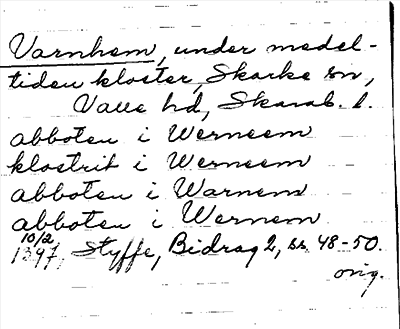 Varnhem, under medel-
tiden kloster, Skarke sn,
Valle hd, Skarab. l.
abboten i Werneem
klostrit i Werneem
abboten i Warnem
abboten i Wernem
10/2
1397, Styffe, Bidrag 2, ss 48-50.
orig.